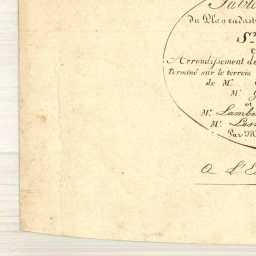 Tabl
du Plan cadast
Arrondissement de
Terminé sur le terrein
de M.
M.
et
M. Lamb
M.
Par M
A l'E